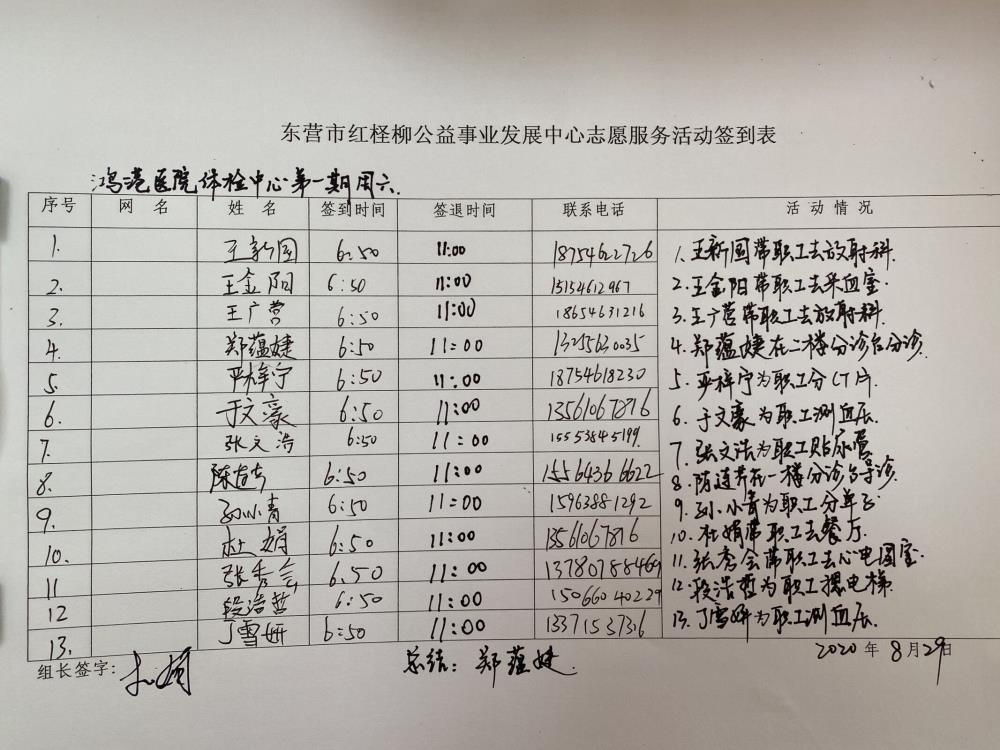 东营市红柽柳公益事业发展中心志愿服务活动签到表
鸿港医院体检中心第一期周六.
序号 网 名 姓 名 签到时间 签退时间 联系电话 活 动 情 况
1. 王新国 6:50 11:00 18754622726 1.王新国带职工去放射科.
2. 王金阳 6:50 11:00 15154612967 2.王金阳带职工去采血室.
3. 王广营 6:50 11:00 18654631216 3.王广营带职工去放射科.
4. 郑蕴婕 6:50 11:00 13255630035 4.郑蕴婕在二楼分诊台分诊.
5. 严梓宁 6:50 11:00 18754618230 5.严梓宁为职工分CT片.
6. 于文豪 6:50 11:00 13561067876 6.于文豪为职工测血压.
7. 张文浩 6:50 11:00 15553845199. 7.张文浩为职工贴尿管
8. 陈莲芹 6:50 11:00 15564366622 8.陈莲芹在一楼分诊台导诊.
9. 孙小青 6:50 11:00 15963881292 9.孙小青为职工分单子
10. 杜娟 6:50 11:00 13561067816 10.杜娟带职工去餐厅.
11 张秀会 6.50 11:00 13780788469 11.张秀会带职工去心电图室.
12 段浩哲 6:50 11:00 15066040229 12.段浩哲为职工摁电梯.
13. 丁雪妍 6:50 11:00 13371537316 13.丁雪妍为职工测血压.
组长签字: 总结: 郑蕴婕.
2020 年 8月29日